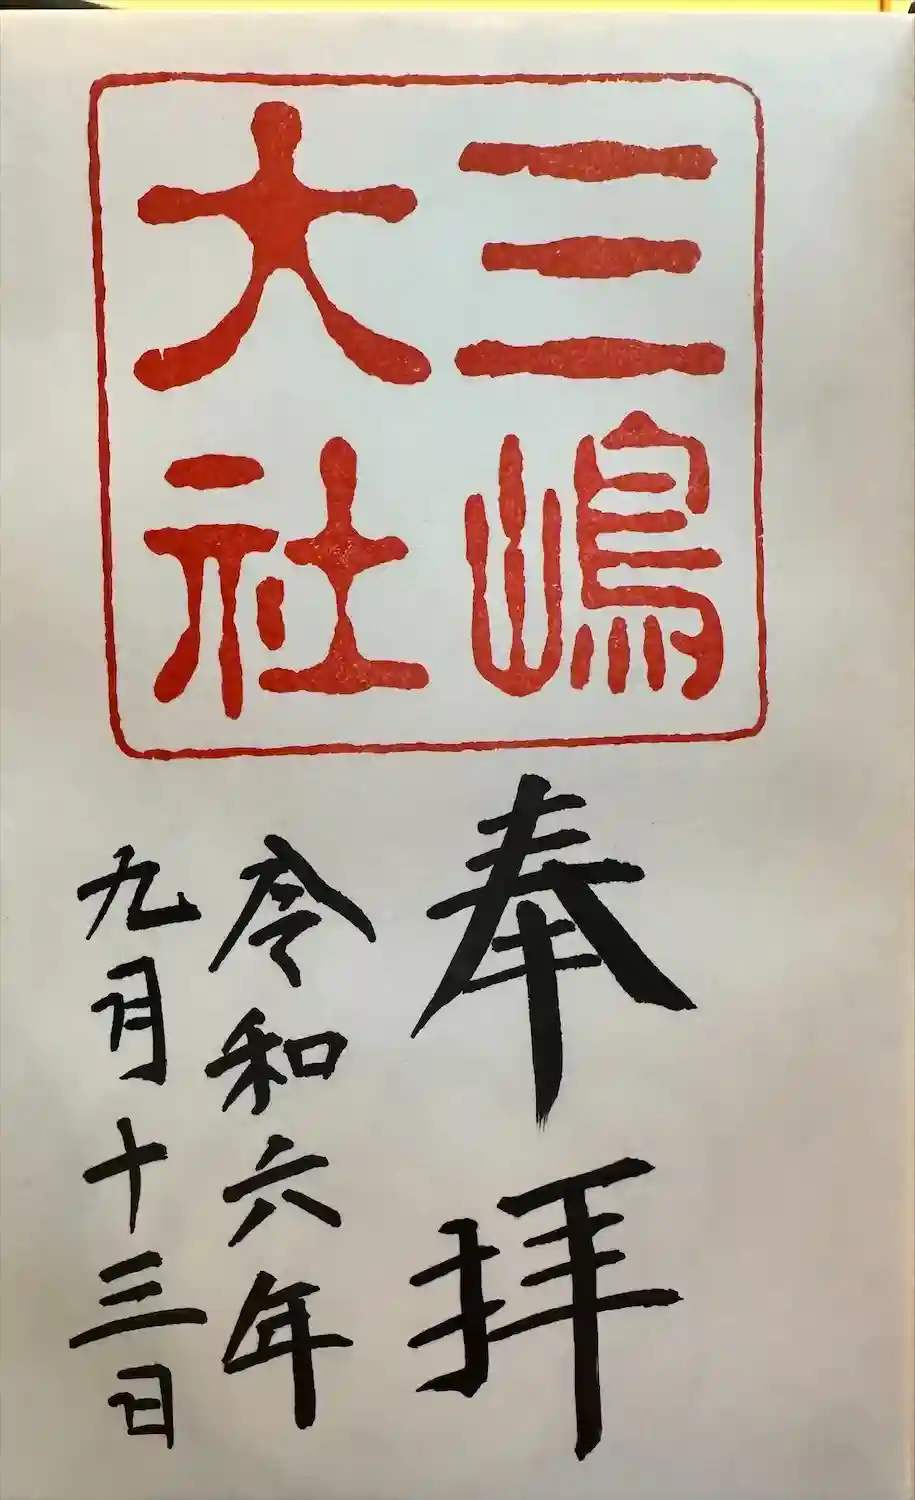 三嶋
大社
奉拝
令和六年
九月十三日